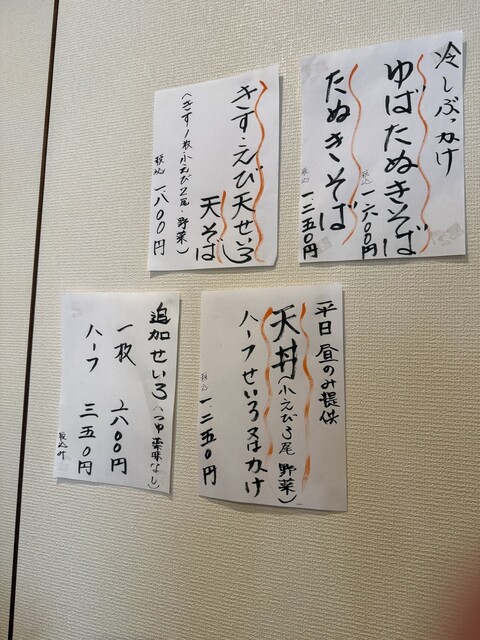 冷しぶっかけ
ゆばたぬきそば
税込 一、六〇〇円
たぬきそば
税込 一、二五〇円
きす・えび天せいろ
天そば
(きす1枚・小えび2尾・野菜)
税込 一、八〇〇円
平日昼のみ提供
天丼(小えび3尾 野菜)
ハーフせいろ又はかけ
税込 一、二五〇円
追加せいろ(つゆ薬味なし)
一枚 六〇〇円
ハーフ 三五〇円
税込